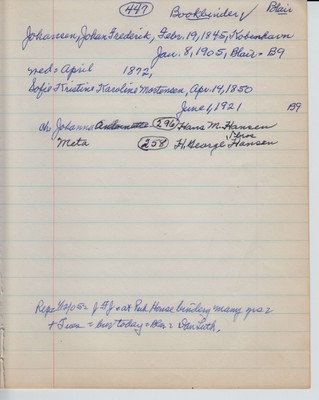 447 Bookbinder Blair
Johansen, Johan Frederick, Febr. 19, 1845, Kobenhavn
Jan. 8, 1905, Blair - B9
wed: April 1872,
Sofie Kristine Karoline Mortensen, Apr. 14, 1850
June 1, 1921 B9
ch Johanna 296 Hans M. Hansen
Bros
Meta 258 H. George Hansen
J F J = at Pub House bindery many yrs =
+ Tues = bur today = Dan Luth.